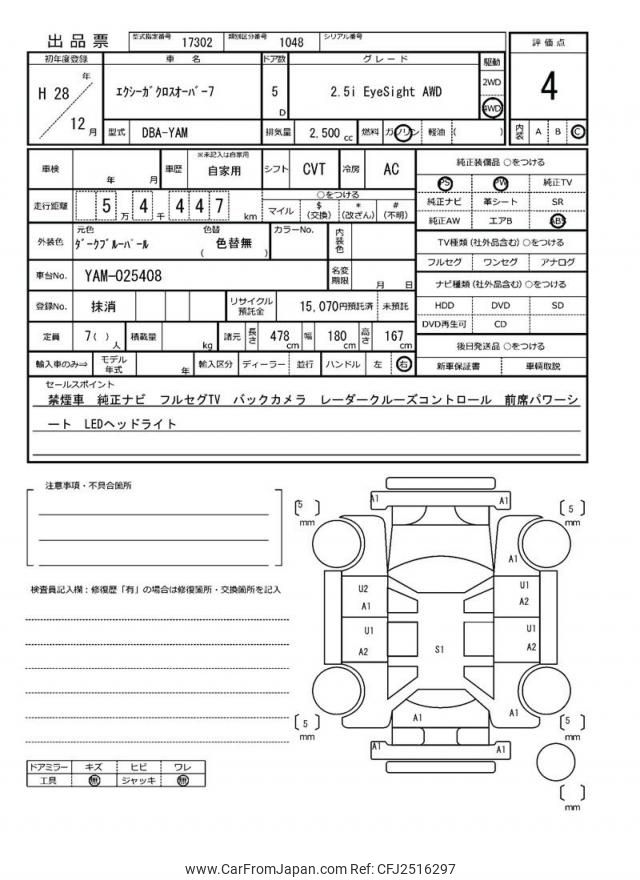 出品票
型式指定番号 17302 類別区分番号 1048 シリアル番号
初年度登録 車 名 ドア数 グレード 駆動 評価点
H 28 年 12 月
エクシーガクロスオーバー7
5 D
2.5i EyeSight AWD
2WD
4WD
4
型式 DBA-YAM 排気量 2.500 cc 燃料 ガソリン 軽油 ( ) 内装 A B C
車検 年 月 車歴 ※未記入は自家用 自家用 シフト CVT 冷房 AC
走行距離 5 万 4 千 4 4 7 km
○をつける
マイル $ (交換) * (改ざん) # (不明)
外装色 元色 ダークブルーパール 色替 ( 色替無 ) カラーNo. 内装色
車台No. YAM-025408 名変期限 月 日
登録No. 抹消 リサイクル預託金 15,070円預託済 未預託
定員 7( ) 人 積載量 kg 諸元 長さ 478 cm 幅 180 cm 高さ 167 cm
輸入車のみ⇒ モデル年式 年 輸入区分 ディーラー 並行 ハンドル 左 右
純正装備品 ○をつける
PS PW 純正TV
純正ナビ 革シート SR
純正AW エアB ABS
TV種類 (社外品含む) ○をつける
フルセグ ワンセグ アナログ
ナビ種類 (社外品含む) ○をつける
HDD DVD SD
DVD再生可 CD
後日発送品 ○をつける
新車保証書 車輌取説
セールスポイント
禁煙車 純正ナビ フルセグTV バックカメラ レーダークルーズコントロール 前席パワーシ
ート LEDヘッドライト
注意事項・不具合箇所
検査員記入欄:修復歴「有」の場合は修復箇所・交換箇所を記入
ドアミラー キズ ヒビ ワレ
工具 無 ジャッキ 無
A1 A1
5 mm
5 mm
A1
U2 U1
A1 A2
U1 U1
A2 A2
S1
A1 A1
5 mm
5 mm
A1 A1
mm
www.CarFromJapan.com Ref: CFJ2516297